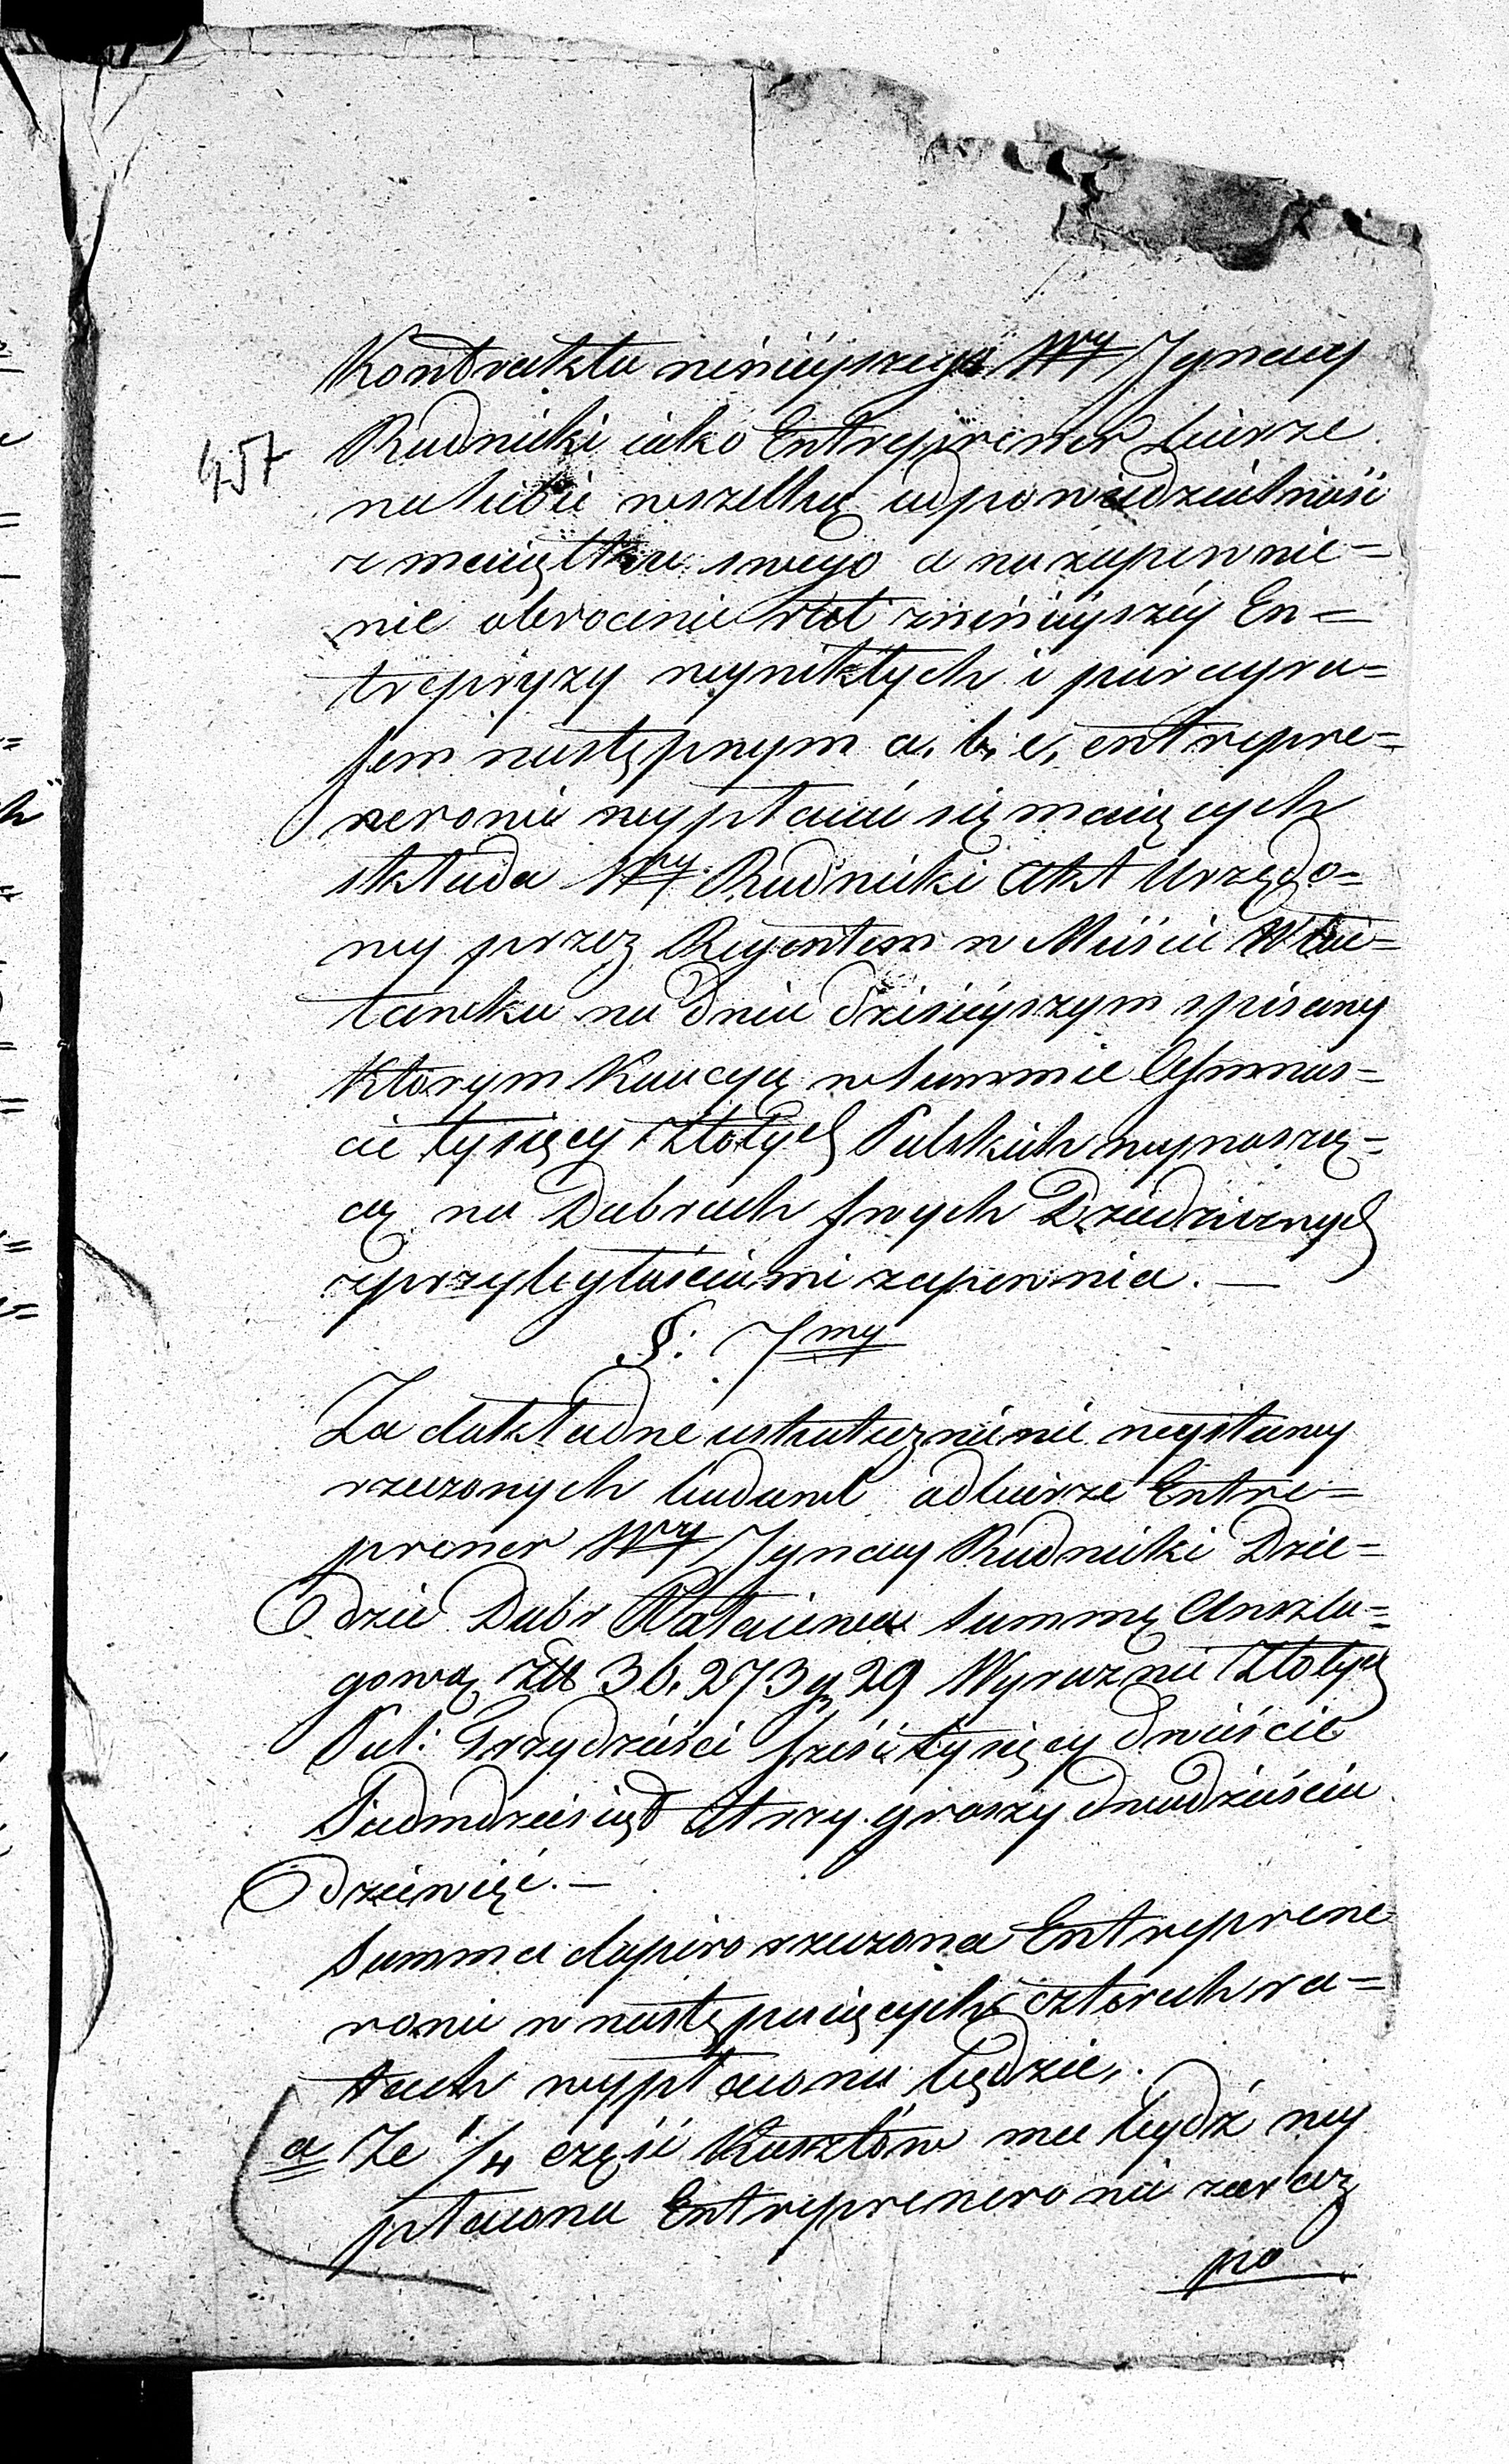 Kontraktu ninieyszego Wny Jgnacy
457
Rudnicki iako Entreprener bierze
na siebie wszelką odpowiedzialność
z maiątku swego a na zapewnie=
nie obrócenia rat z ninieyszéy En=
trepryzy wynikłych i paragra=
fem następnym a, b, c, entrepre=
nerowi wypłacić się maiących
składa Wny Rudnicki Akt Urzędo=
wy przez Reyentem w Mieście
na dniu dzisieyszym spisany
którym Kaucyą w summie Ośmnas=
cie tysięcy Złotych Polskich wynoszą=
cą na Dobrach swych Dziedzicznych
z przyległościami zapewnia. —
§: 7my
Za dokładne uskutecznienie wystawy
rzeczonych budowl odbierze Entre=
prener Wny Jgnacy Rudnicki Dzie=
dzic Dóbr Rataiewa summę Anszla=
gową Złt 36,273 g 29 Wyraznie Złotych
Pol: Trzydzieści sześć tysięcy dwieście
Siedmdziesiąt trzy groszy dwadzieścia
dziewięć. —
Summa dopiero rzeczona Entreprene
rowi w następuiących czterech ra=
tach wypłacona będzie,
a Ze 1/4 część Kosztów ma bydź wy
płacona Entreprenerowi zaraz
po